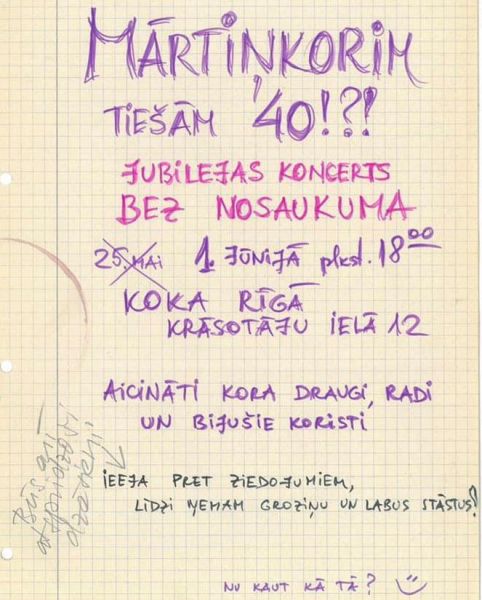 MĀRTIŅKORIM
TIEŠĀM '40!?!
JUBILEJAS KONCERTS
BEZ NOSAUKUMA
25. MAI 1. JŪNIJĀ plkst. 18 00
KOKA RĪGĀ
KRĀSOTĀJU IELĀ 12
AICINĀTI KORA DRAUGI, RADI
UN BIJUŠIE KORISTI
IEEJA PRET ZIEDOJUMIEM,
LĪDZI ŅEMAM GROZIŅU UN LABUS STĀSTUS!
NU KAUT KĀ TĀ?